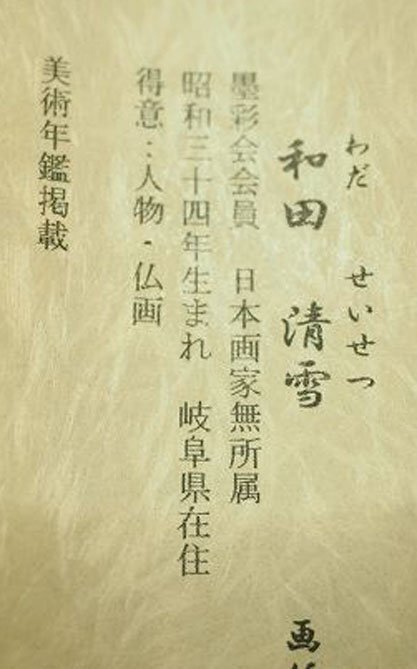 わだ せいせつ
和田 清雪 画
墨彩会会員 日本画家無所属
昭和三十四年生まれ 岐阜県在住
得意:人物・仏画
美術年鑑掲載